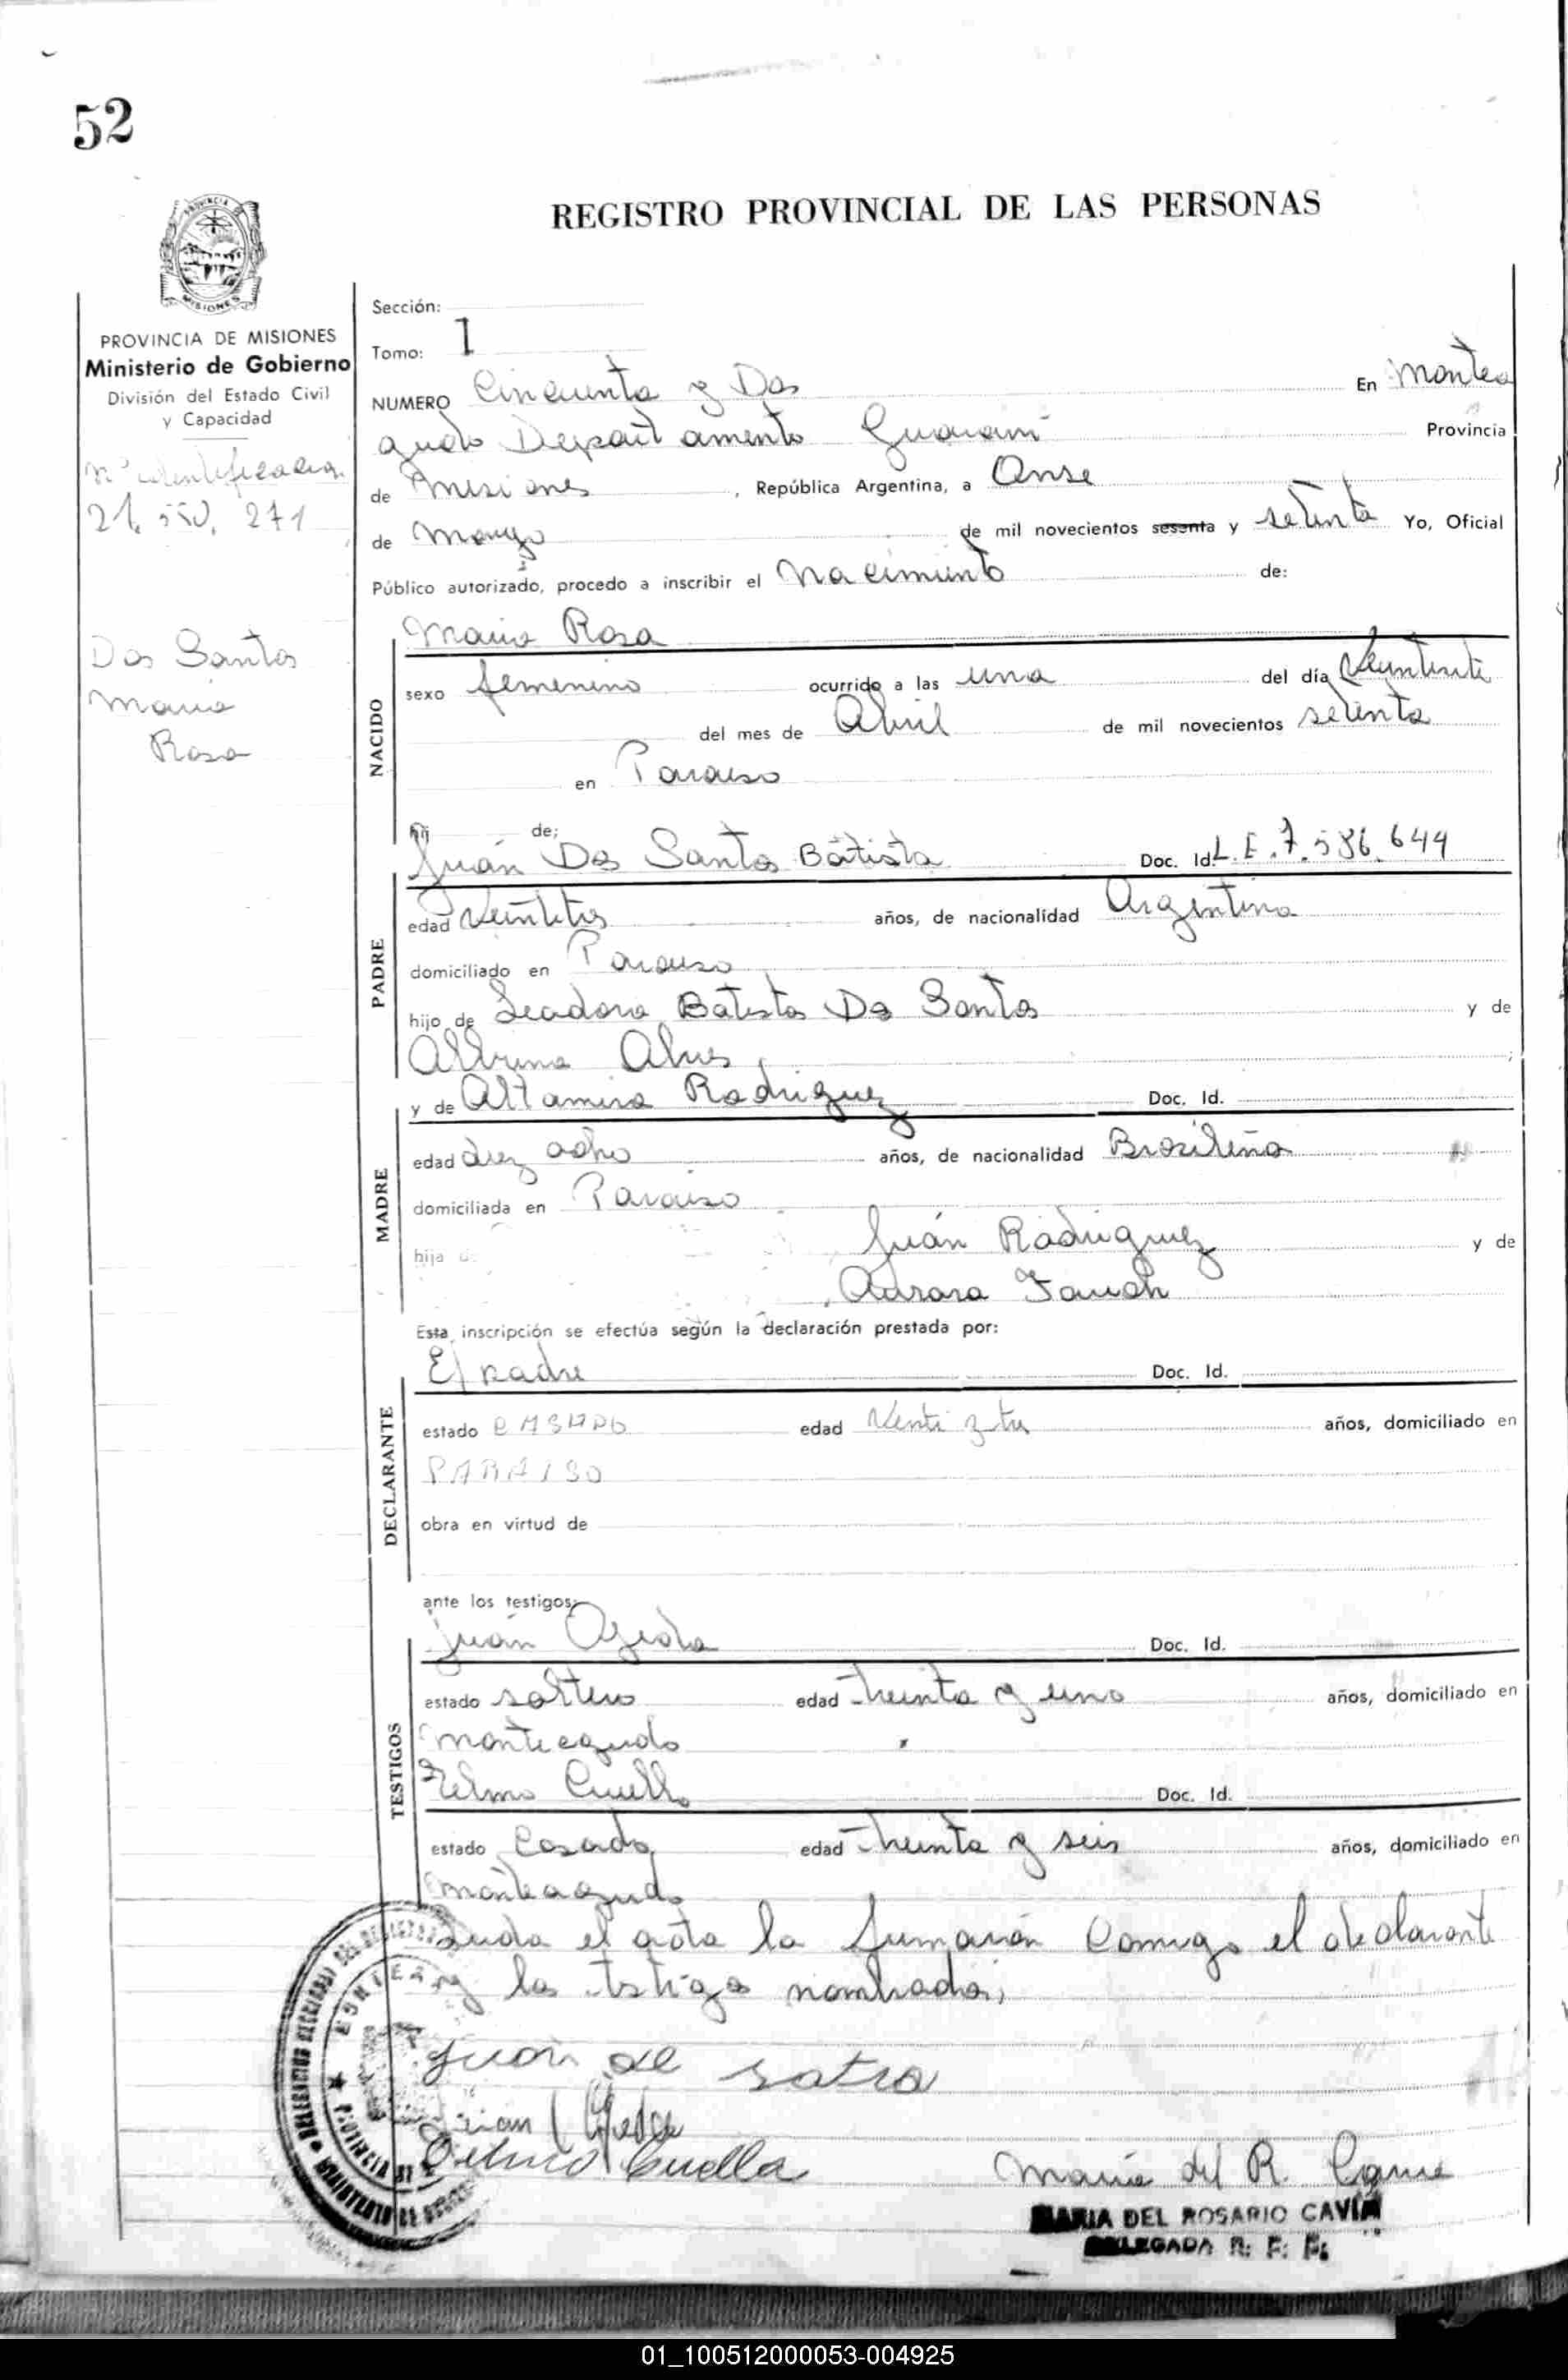 52
REGISTRO PROVINCIAL DE LAS PERSONAS
PROVINCIA DE MISIONES
Ministerio de Gobierno
División del Estado Civil
y Capacidad
Nº identificacion
21.550.271
Dos Santos
Maria
Rosa
Sección:
Tomo: 1
NUMERO Cincuenta y Dos En Montea
gudo Departamento Guarani Provincia
de Misiones, República Argentina, a Onse
de Marzo de mil novecientos sesenta y setenta Yo, Oficial
Público autorizado, procedo a inscribir el Nacimiento de:
Maria Rosa
NACIDO
sexo femenino ocurrido a las una del día
del mes de Abril de mil novecientos setenta
en Paraiso
hij de;
Juán Dos Santos Batista Doc. Id. L.E.7.586.644
PADRE
edad años, de nacionalidad Argentina
domiciliado en Paraiso
hijo de Batista Dos Santos y de
Albina Alves;
y de Altamira Rodriguez Doc. Id.
MADRE
edad diez ocho años, de nacionalidad Brasileña
domiciliada en Paraiso
hija d
Juán Rodriguez y de
Aurora
Esta inscripción se efectúa según la declaración prestada por:
El padre Doc. Id.
DECLARANTE
estado CASADO edad años, domiciliado en
PARAISO
obra en virtud de
ante los testigos:
Juán Ojeda Doc. Id.
TESTIGOS
estado soltero edad treinta y uno años, domiciliado en
Monteagudo
Telmo Cuello Doc. Id.
estado Casado edad treinta y seis años, domiciliado en
Monteagudo
el acta la Comigo el declarante
y los testigos nombrados,
Juan
Cuella
Maria del R.
MARIA DEL ROSARIO CAVIA
DELEGADA R. P. P.
01_100512000053-004925